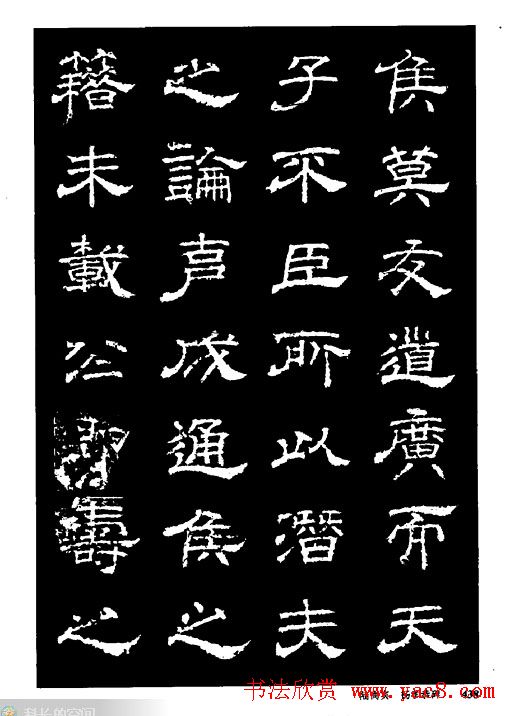 侯莫友道廣而天
子不臣所以潛夫
之論成通侯之
籍未載公壽之
书法欣赏 www.yac8.com
科长的空间